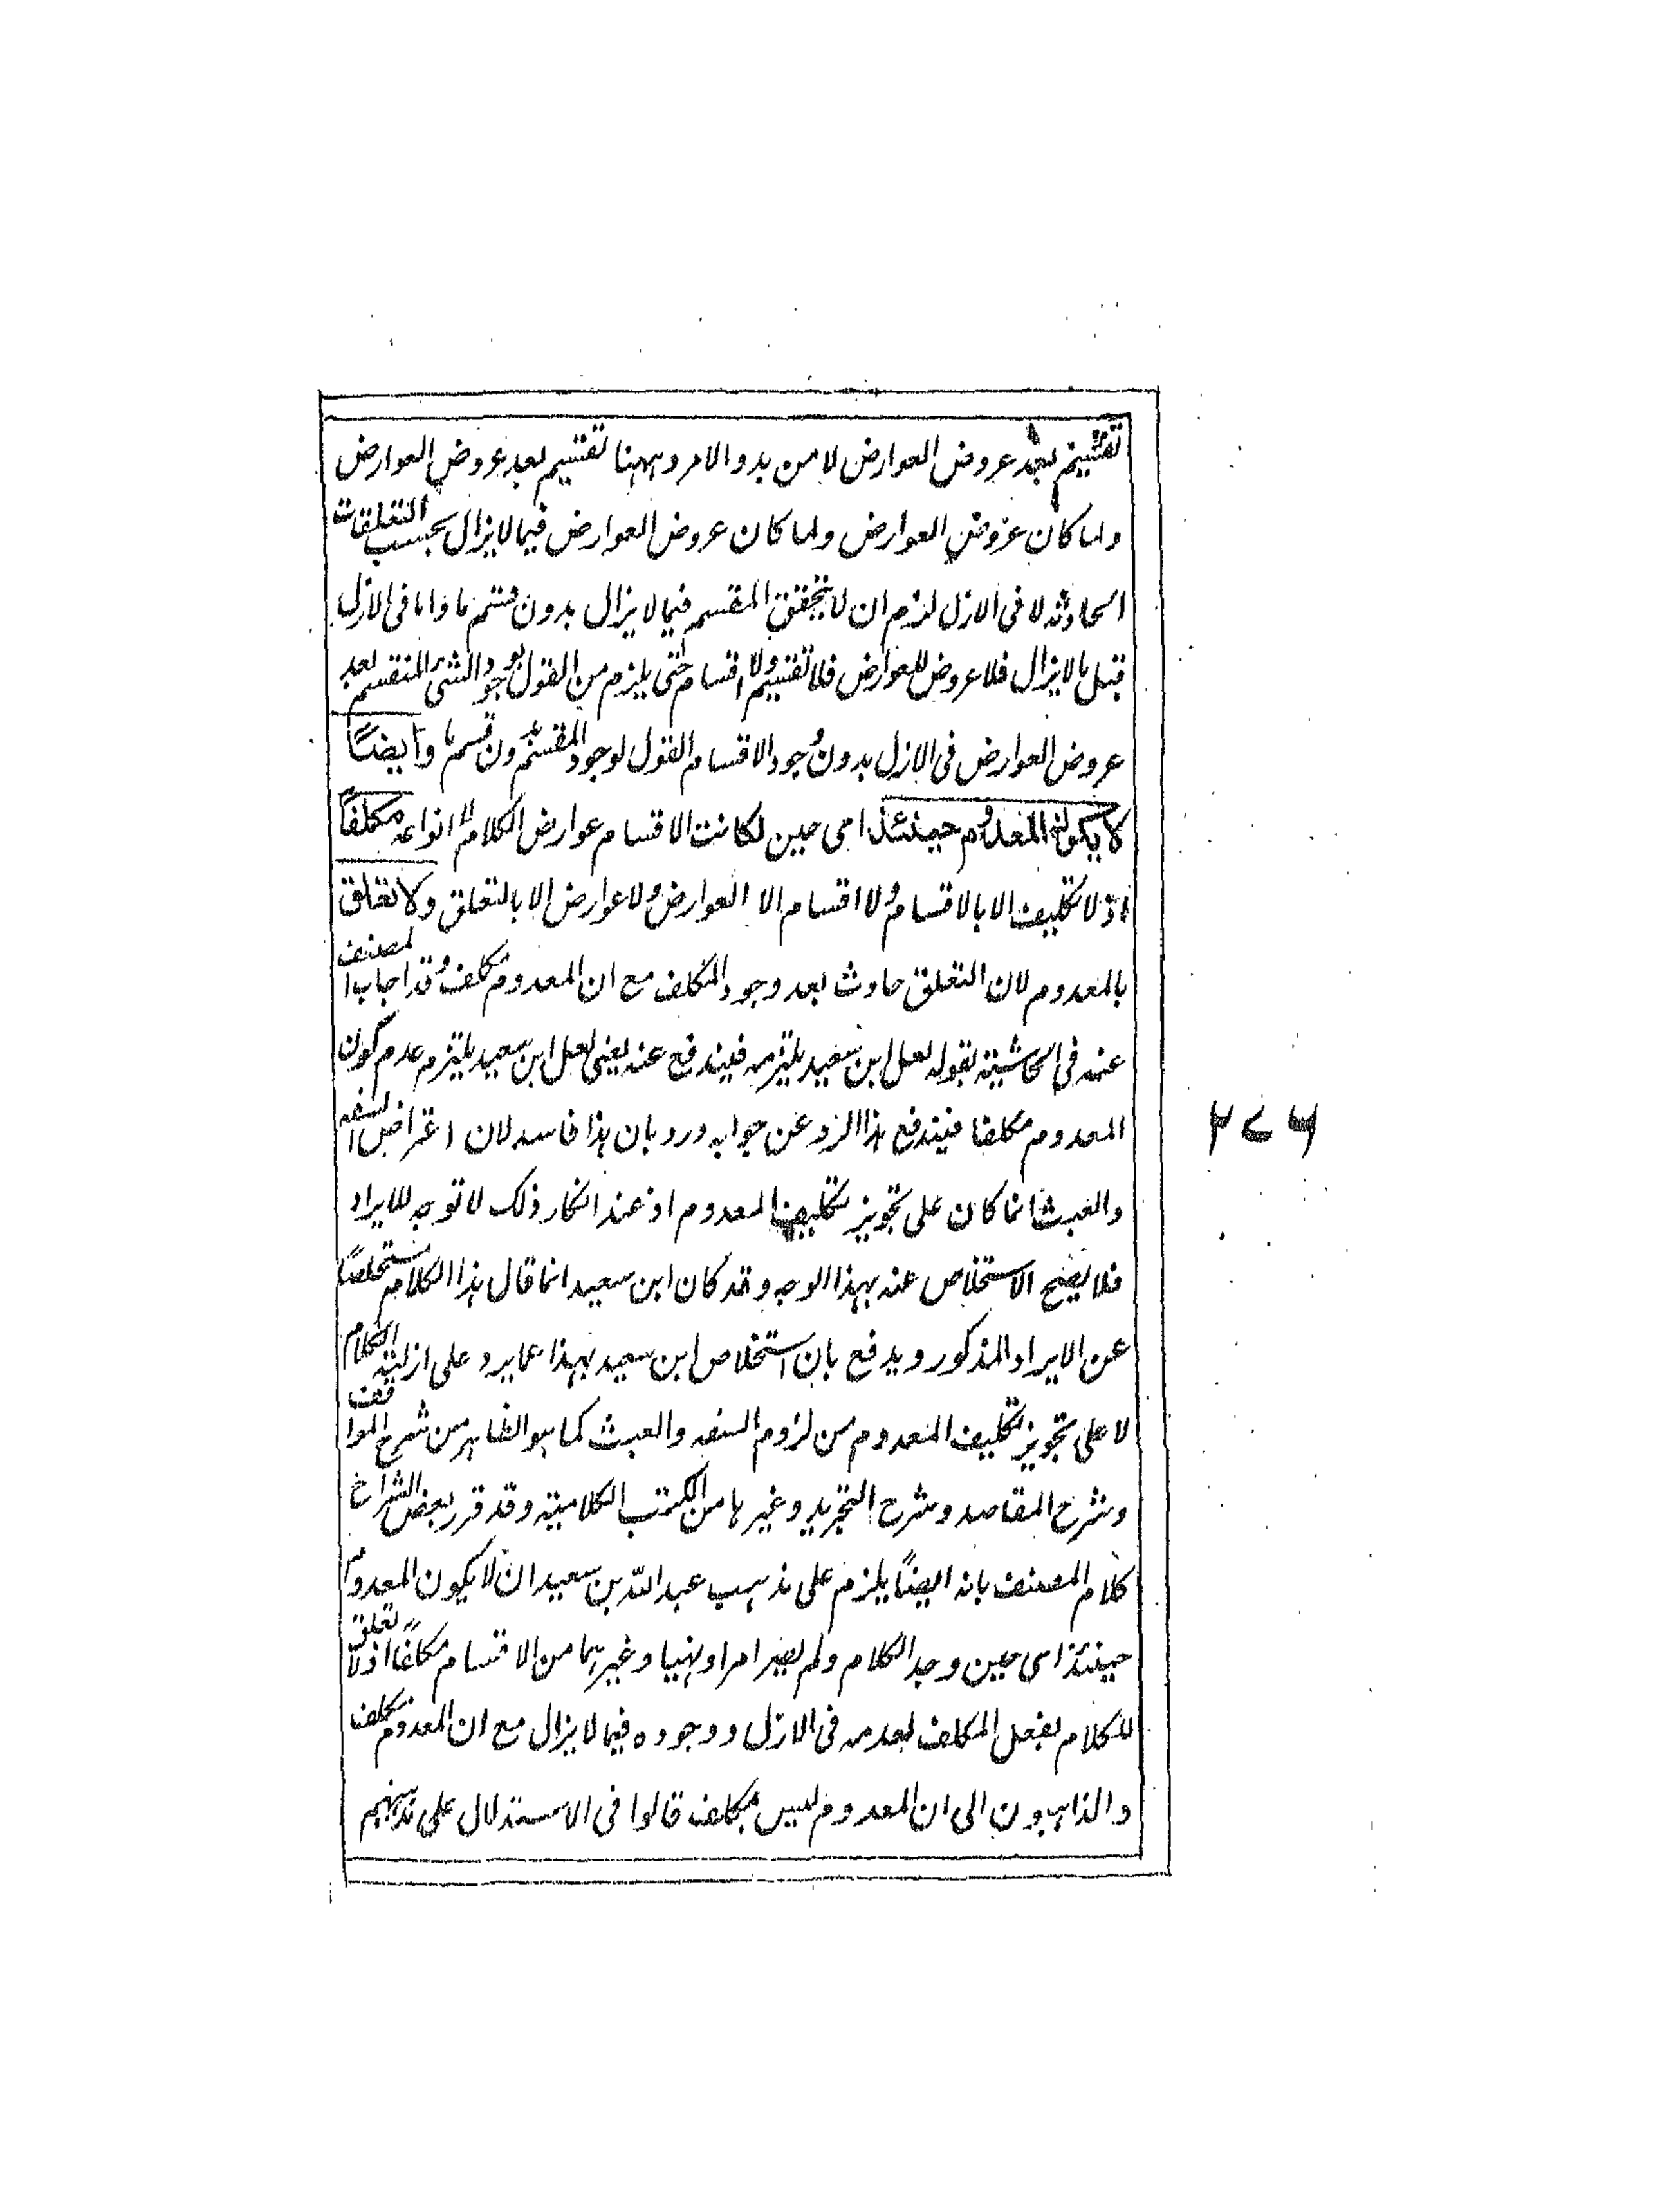 تقسيم بعد عروض العوارض لا من بدو الامر وههنا تقسيم بعد عروض العوارض
ولما كان عروض العوارض ولما كان عروض العوارض فيما لا يزال بحسب التعلقات
الحادثة لا فى الازل لزم ان لا يتحقق المقسم فيما لا يزال بدون قسم ما واما فى الازل
قبل ما لا يزال فلا عروض للعوارض فلا تقسيم ولا اقسام حتى يلزم من القول بوجود الشئ المنقسم بعد
عروض العوارض فى الازل بدون وجود الاقسام القول لوجود المقسم بدون قسم ما وايضًا
لا يكون المعدوم حينئذ اى حين لكانت الاقسام عوارض الكلام لا انواعه مكلفًا
اذ لا تكليف الا بالاقسام ولا اقسام الا العوارض ولا عوارض الا بالتعلق ولا تعلق
بالمعدوم لان التعلق حادث بعد وجود المكلف مع ان المعدوم مكلف وقد اجاب المصنف
عنه فى الحاشية بقوله لعل ابن سعيد يلتزمه فيندفع عنه يعنى لعل ابن سعيد يلتزم عدم كون
المعدوم مكلفا فيندفع هذا الرد عن جوابه ورد بان هذا فاسد لان اعتراض السفه
والعبث انما كان على تجويز تكليف المعدوم اذ عند انكار ذلك لا توجه للايراد
فلا يصح الاستخلاص عنه بهذا الوجه وقد كان ابن سعيد انما قال هذا الكلام مستخلصًا
عن الايراد المذكور ويدفع بان استخلاص ابن سعيد بهذا عما يرد على ازلية الكلام
لا على تجويز تكليف المعدوم من لزوم السفه والعبث كما هو الظاهر من شرح المواقف
وشرح المقاصد وشرح التجريد وغيرها من الكتب الكلامية وقد قرر بعض الشراح
كلام المصنف بانه ايضًا يلزم على مذهب عبد الله بن سعيد ان لا يكون المعدوم
حينئذ اى حين وجد الكلام ولم يصر امرا ونهيا وغيرهما من الاقسام مكلفًا اذ لا تعلق
للكلام بفعل المكلف لعدمه فى الازل ووجوده فيما لا يزال مع ان المعدوم مكلف
والذاهبون الى ان المعدوم ليس بمكلف قالوا فى الاستدلال على مذهبهم
۲۷۶